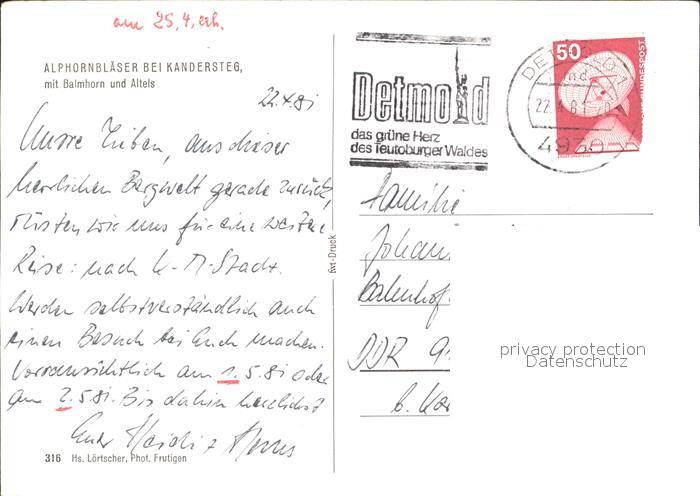 am 25,4, erh.
ALPHORNBLÄSER BEI KANDERSTEG,
mit Balmhorn und Altels
22.4.81
Unsre Lieben, aus dieser
herrlichen Bergwelt gerade zurück,
rüsten wir uns für eine weitere
Reise: nach K-M-Stadt.
Werden selbstverständlich auch
einen Besuch bei Euch machen.
Voraussichtlich am 1.5.81 oder
am 2.5.81. Bis dahin herzlichst
Eure Heidi +
316 Hs. Lörtscher, Phot. Frutigen
Detmold
das grüne Herz
des Teutoburger Waldes
DETMOLD 1
22.4.81
4930
50
BUNDESPOST
Familie
Johan
Bahnhof
DDR 9
b. Kar
privacy protection
Datenschutz